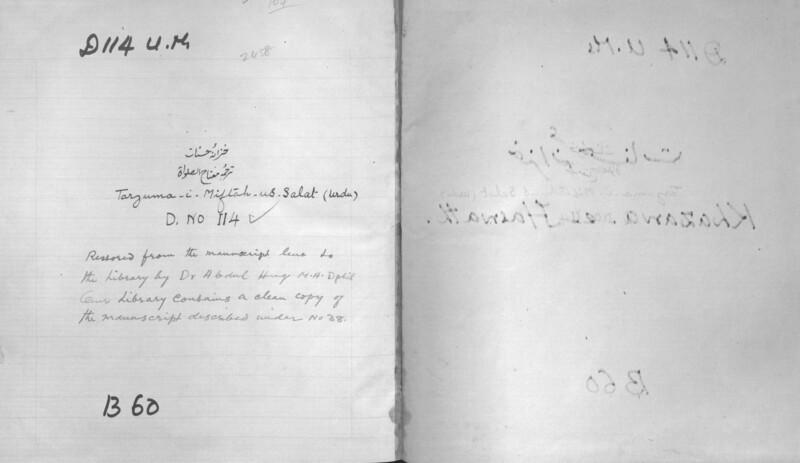 D 114 U.M
2458
خزانۂ حسنات
ترجمہ مفتاح الصلواۃ
Tarzuma-i-Miftah-us-Salat (Urdu)
D. No 114 ✓
Restored from the manuscript lent to
the Library by Dr Abdul Huq M.A. Dphil
Our Library contains a clean copy of
the manuscript described under No 38.
B 60
D 114 U.M
خزانہ حسنات
Khazana Hasnath.
B 60